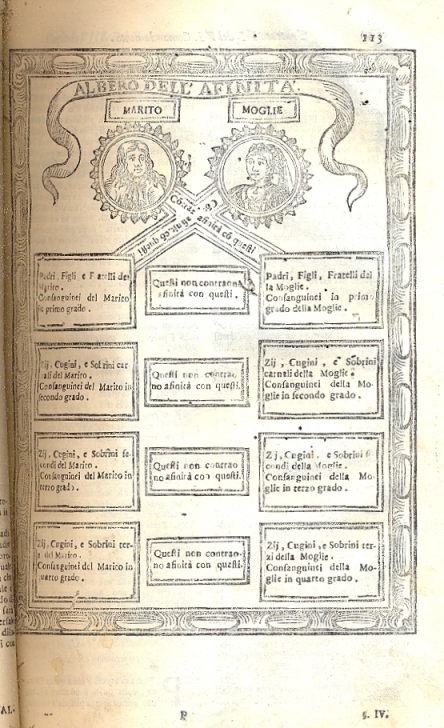 113
ALBERO DELL' AFINITA.
MARITO
MOGLIE
afinità cõ questi
afinità cõ questi
Padri, Figli e Fratelli del
Marito.
Consanguinei del Marito
in primo grado.
Questi non contraono
afinità con questi.
Padri, Figli, Fratelli del
la Moglie.
Consanguinei in primo
grado della Moglie.
Zij, Cugini, e Sobrini car
nali del Marito.
Consanguinei del Marito in
secondo grado.
Questi non contrao-
no afinità con questi.
Zij, Cugini, e Sobrini
carnali della Moglie.
Consanguinei della Mo-
glie in secondo grado.
Zij, Cugini, e Sobrini se
condi del Marito.
Consanguinei del Marito in
terzo grado.
Questi non contrao
no afinità con questi.
Zj, Cugini, e Sobrini se
condi della Moglie.
Consanguinei della Mo
glie in terzo grado.
Zij, Cugini, e Sobrini ter-
zi del Marito.
Consanguinei del Marito in
quarto grado.
Questi non contrao-
no afinità con questi.
Zij, Cugini, e Sobrini ter
zi della Moglie.
Consanguinei della Mo-
glie in quarto grado.
P
§. IV.